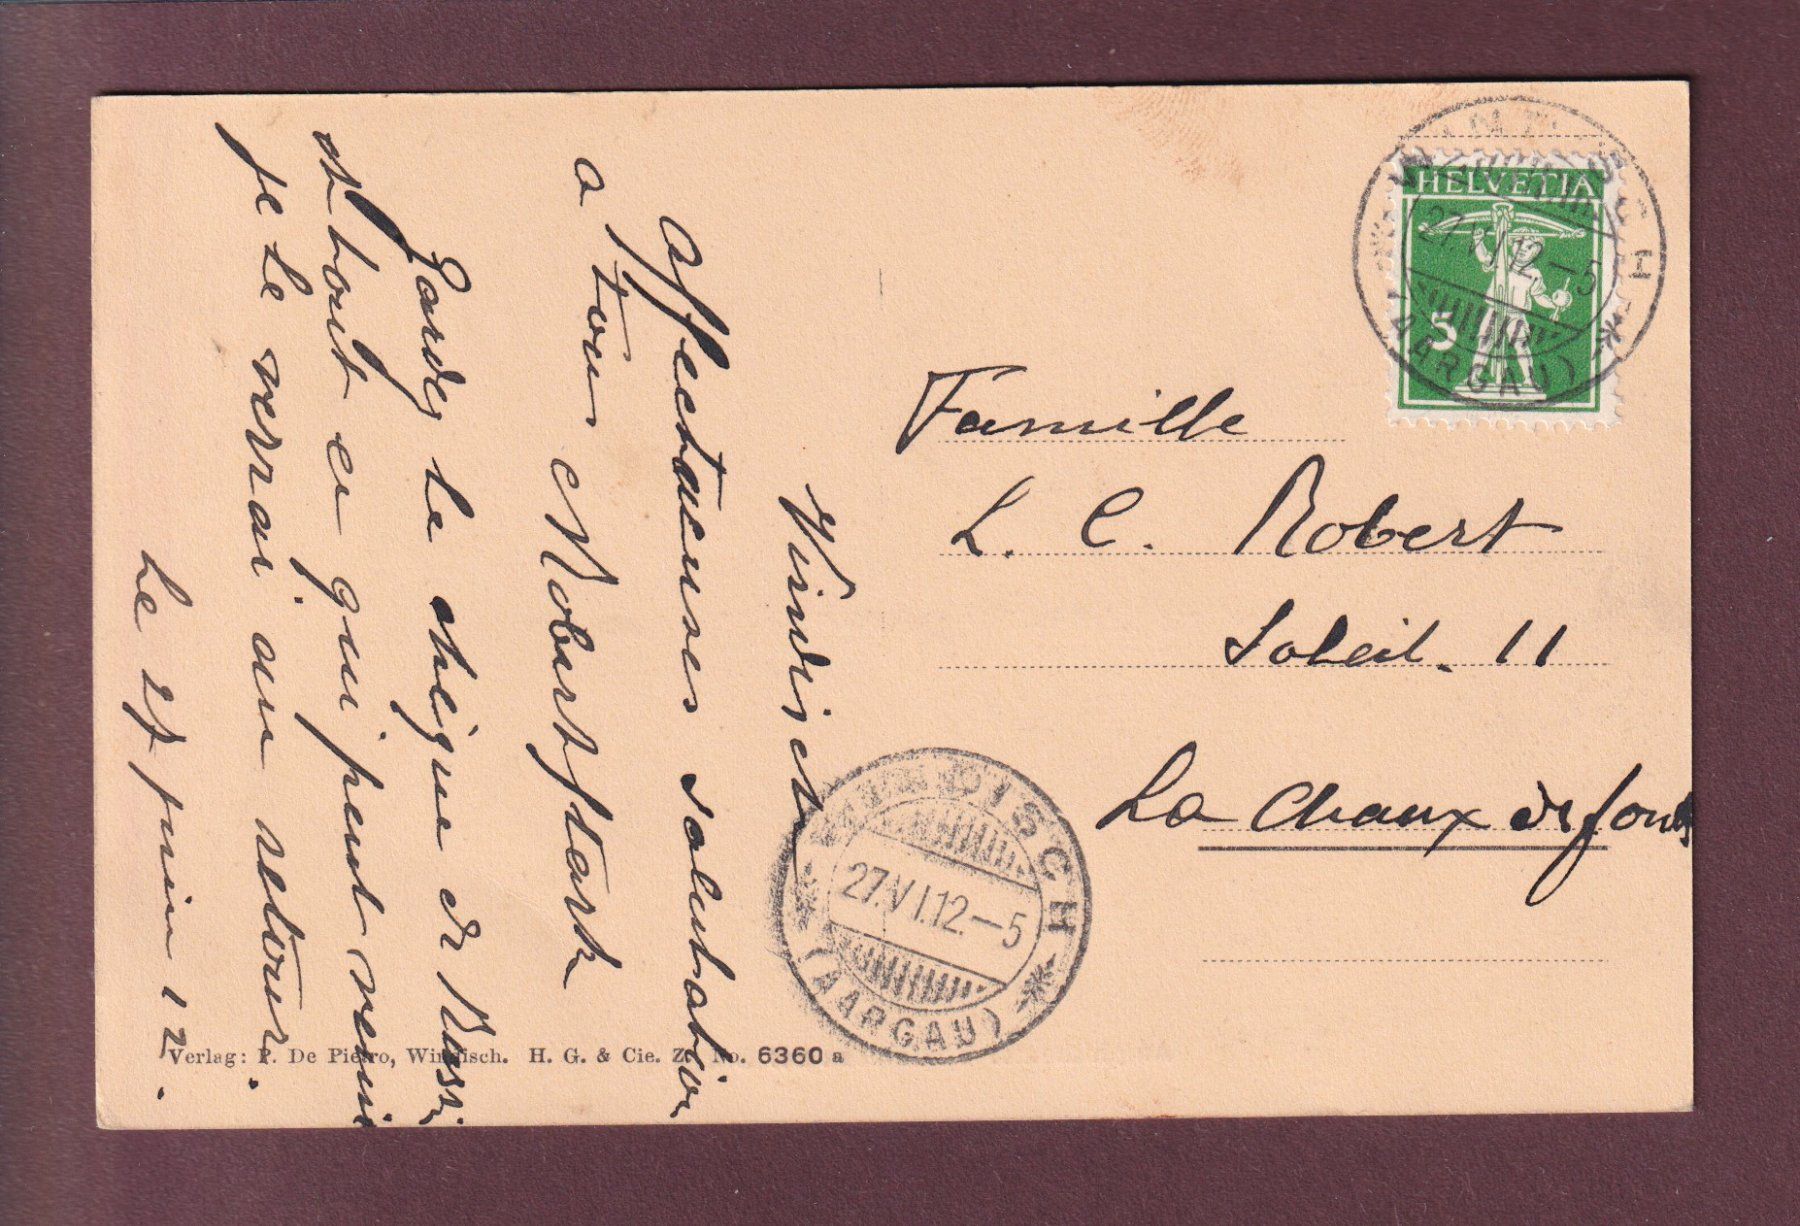 Windisch
Affectueuses salutation
a tous
Gardez le chèque de
et tout ce qui peut venir
je le verrai au retour.
Le 27 juin 12.
Famille
L. C. Robert
Soleil. 11
La Chaux de fonds
HELVETIA
5
WINDISCH
27.VI.12.–5
(AARGAU)
WINDISCH
27.VI.12.–5
(AARGAU)
Verlag: P. De Pietro, Windisch. H. G. & Cie. Z. No. 6360 a